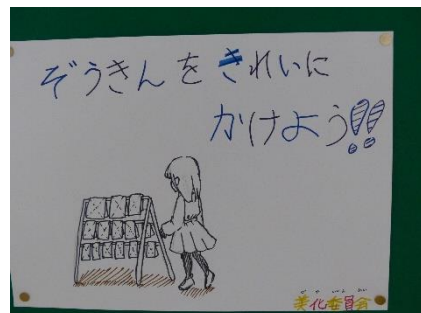 ぞうきんをきれいに
かけよう!!
美化委員会